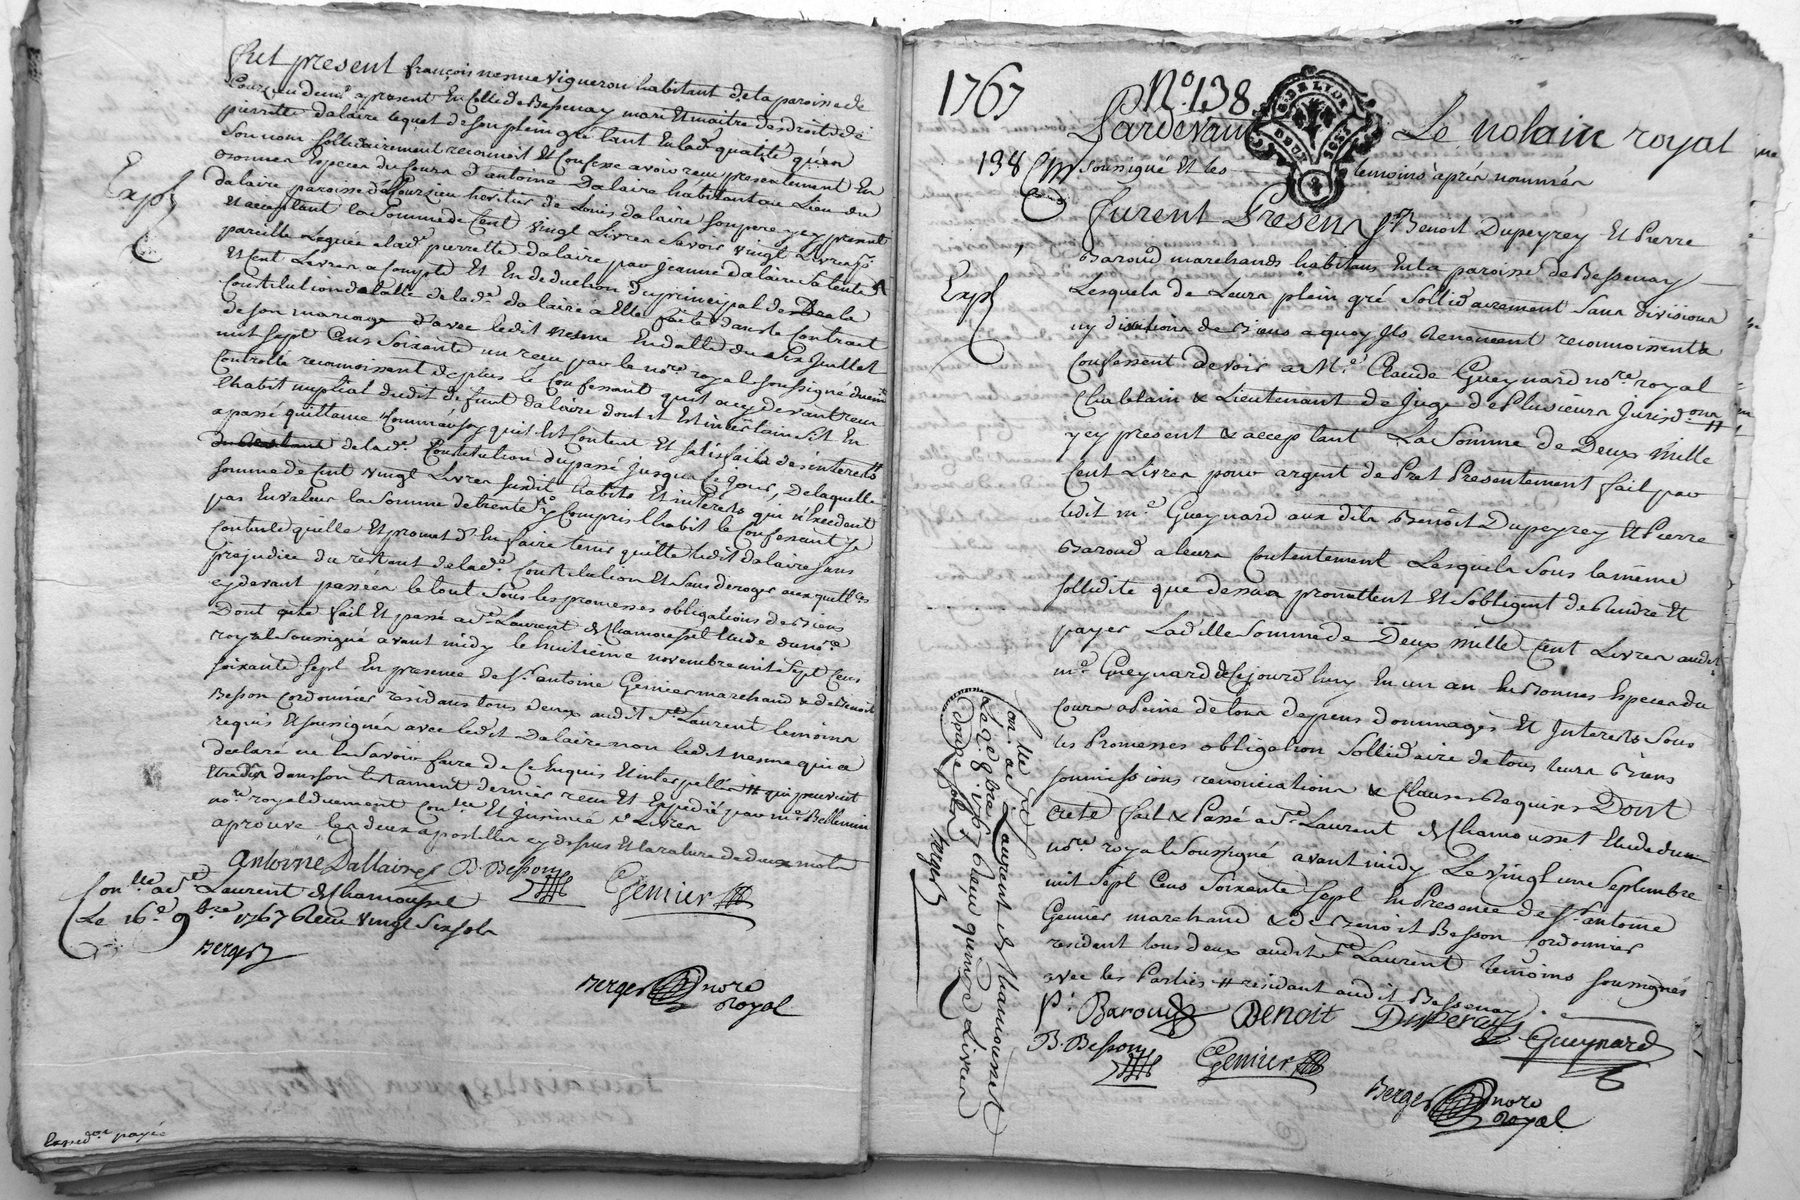 Fut present françois nesme Vigneron habitant de la paroisse de
Courzieu demt a present En Celle de Bessenay mari Et maitre des droits de
pierrette dalaire lequel de son plein gré tant En lade qualité qu'en
Son nom Sollidairement reconnoit Et Confesse avoir recu presentement En
Especes du Cours d'antoine Dalaire habitant au Lieu du
dalaire paroisse de Courzieu heritier de Louis dalaire son pere y cy present
Et acceptant la Somme de Cent vingt Livres Savoir vingt Livres
pareille Leguée a lade pierrette dalaire par jeanne dalaire Sa tente
Et Cent Livres a Compte Et En deduction du principal de la
Constitution de lade dalaire a Elle faite dans le Contrant
de son mariage d'avec ledit nesme En datte du Six Juillet
mil sept Cens Soixante un reçu par le nore royal Soussigné duemt
Controllé reconnoissant de plus le Confessant qu'il a cy devant recu
l'habit nuptial dudit defunt dalaire dont il Est
a passé quittance Comme aussy qu'il Est Content Et satisfait des interets
de lade Constitution du passé jusqu'a Ce jour, De laquelle
somme de Cent vingt Livres susdit habits Et interets qui n'Excedent
pas En valeur la Somme de trente y Compris l'habit le Confessant Se
Contente quitte Et promet d'En faire tenir quitte ledit dalaire sans
prejudice du restant de lade Constitution Et Sans deroger aux quittces
cy devant passées le tout Sous les promesses obligations de Biens
Dont acte fait Et passé a St Laurent de Chamousset Etude du nore
royal Soussigné avant midy le huitieme novembre mil Sept Cens
soixante Sept En presence de Sr antoine Genier marchand & de Benoit
Besson Cordonnier residans tous deux audit St Laurent temoins
requis Et soussignés avec ledit dalaire non ledit nesme qui a
declaré ne le Savoir faire de Ce Enquis Et interpellé
dans son testament dernier recu Et Expedié par me Bellemin
nore royal duement Contlé Et Insinué
aprouvé les deux apostilles cy dessus Et la rature de deux mots
Antoine Dallaires B. Besson
Genier
Conlle a St Laurent de Chamousset
Le 16e 9bre 1767 Recu Vingt Six sols
Berger
Berger nore
royal
Exp
Exped payée
1767 No. 138
Pardevant Le notaire royal
138 soussigné Et les temoins après nommés
Furent Presens Sr Benoit Dupeyrey Et Pierre
Baroud marchands habitans En la paroisse de Bessenay
Lesquels de Leurs plein gré Sollidairement Sans division
ny discution de Biens a quoy Ils Renoncent reconnoissent &
Confessent devoir a Me Claude Gueynard nore royal
Chatelain & Lieutenant de Juge de Plusieurs Jurisdons
y cy present & acceptant La Somme de Deux Mille
Cent Livres pour argent de Pret Presentement fait par
ledit me Gueynard aux dits Benoît Dupeyrey Et Pierre
Baroud a leurs Contentement Lesquels Sous la même
sollidité que dessus promettent Et S'obligent de Rendre Et
payer Ladite Somme de Deux mille Cent Livres audit
me Gueynard de Ce jourd'huy En un an En Bonnes Especes du
Cours a Peine de tous depens dommages Et Interets Sous
les Promesses obligation Sollidaire de tous leurs Biens
soumissions renonciations & Clauses Requises Dont
acte fait & Passé a St Laurent de Chamousset Etude du
nore royal Soussigné avant midy Le Vingt une Septembre
mil Sept Cens Soixante Sept En Presence de Sr antoine
Genier marchand & de Benoit Besson Cordonnier
resident tous deux audit St Laurent temoins soussignés
avec les Parties residant audit Bessenay
P. Baroud Benoit Duperay
Gueynard
B. Besson Genier
Berger nore
royal
Exp
Conlle a St Laurent de Chamousset
Le 28 7bre 1767 Reçu quinze Livres
douze sols
Berger